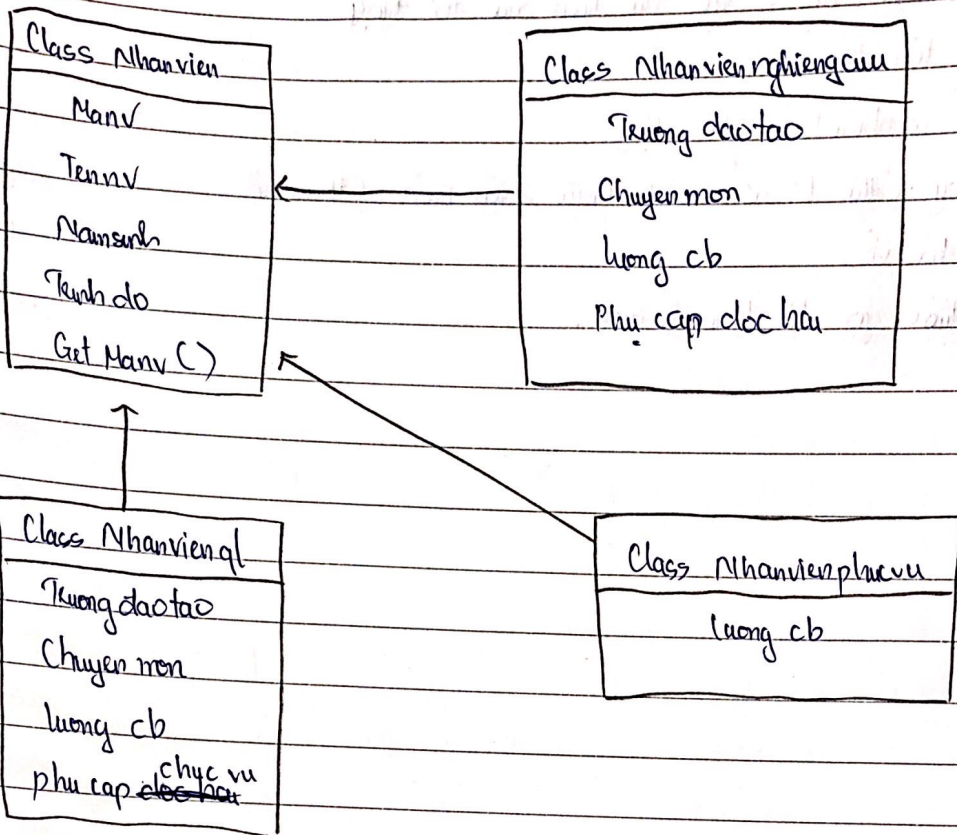 Class Nhanvien
Manv
Tennv
Namsinh
Trinh do
Get Manv ()
Class Nhanviennghiengcuu
Truong daotao
Chuyen mon
luong cb
Phụ cap doc hai
Class Nhanvienql
Truong daotao
Chuyen mon
luong cb
phu cap chưc vu
Class Nhanvienphucvu
luong cb